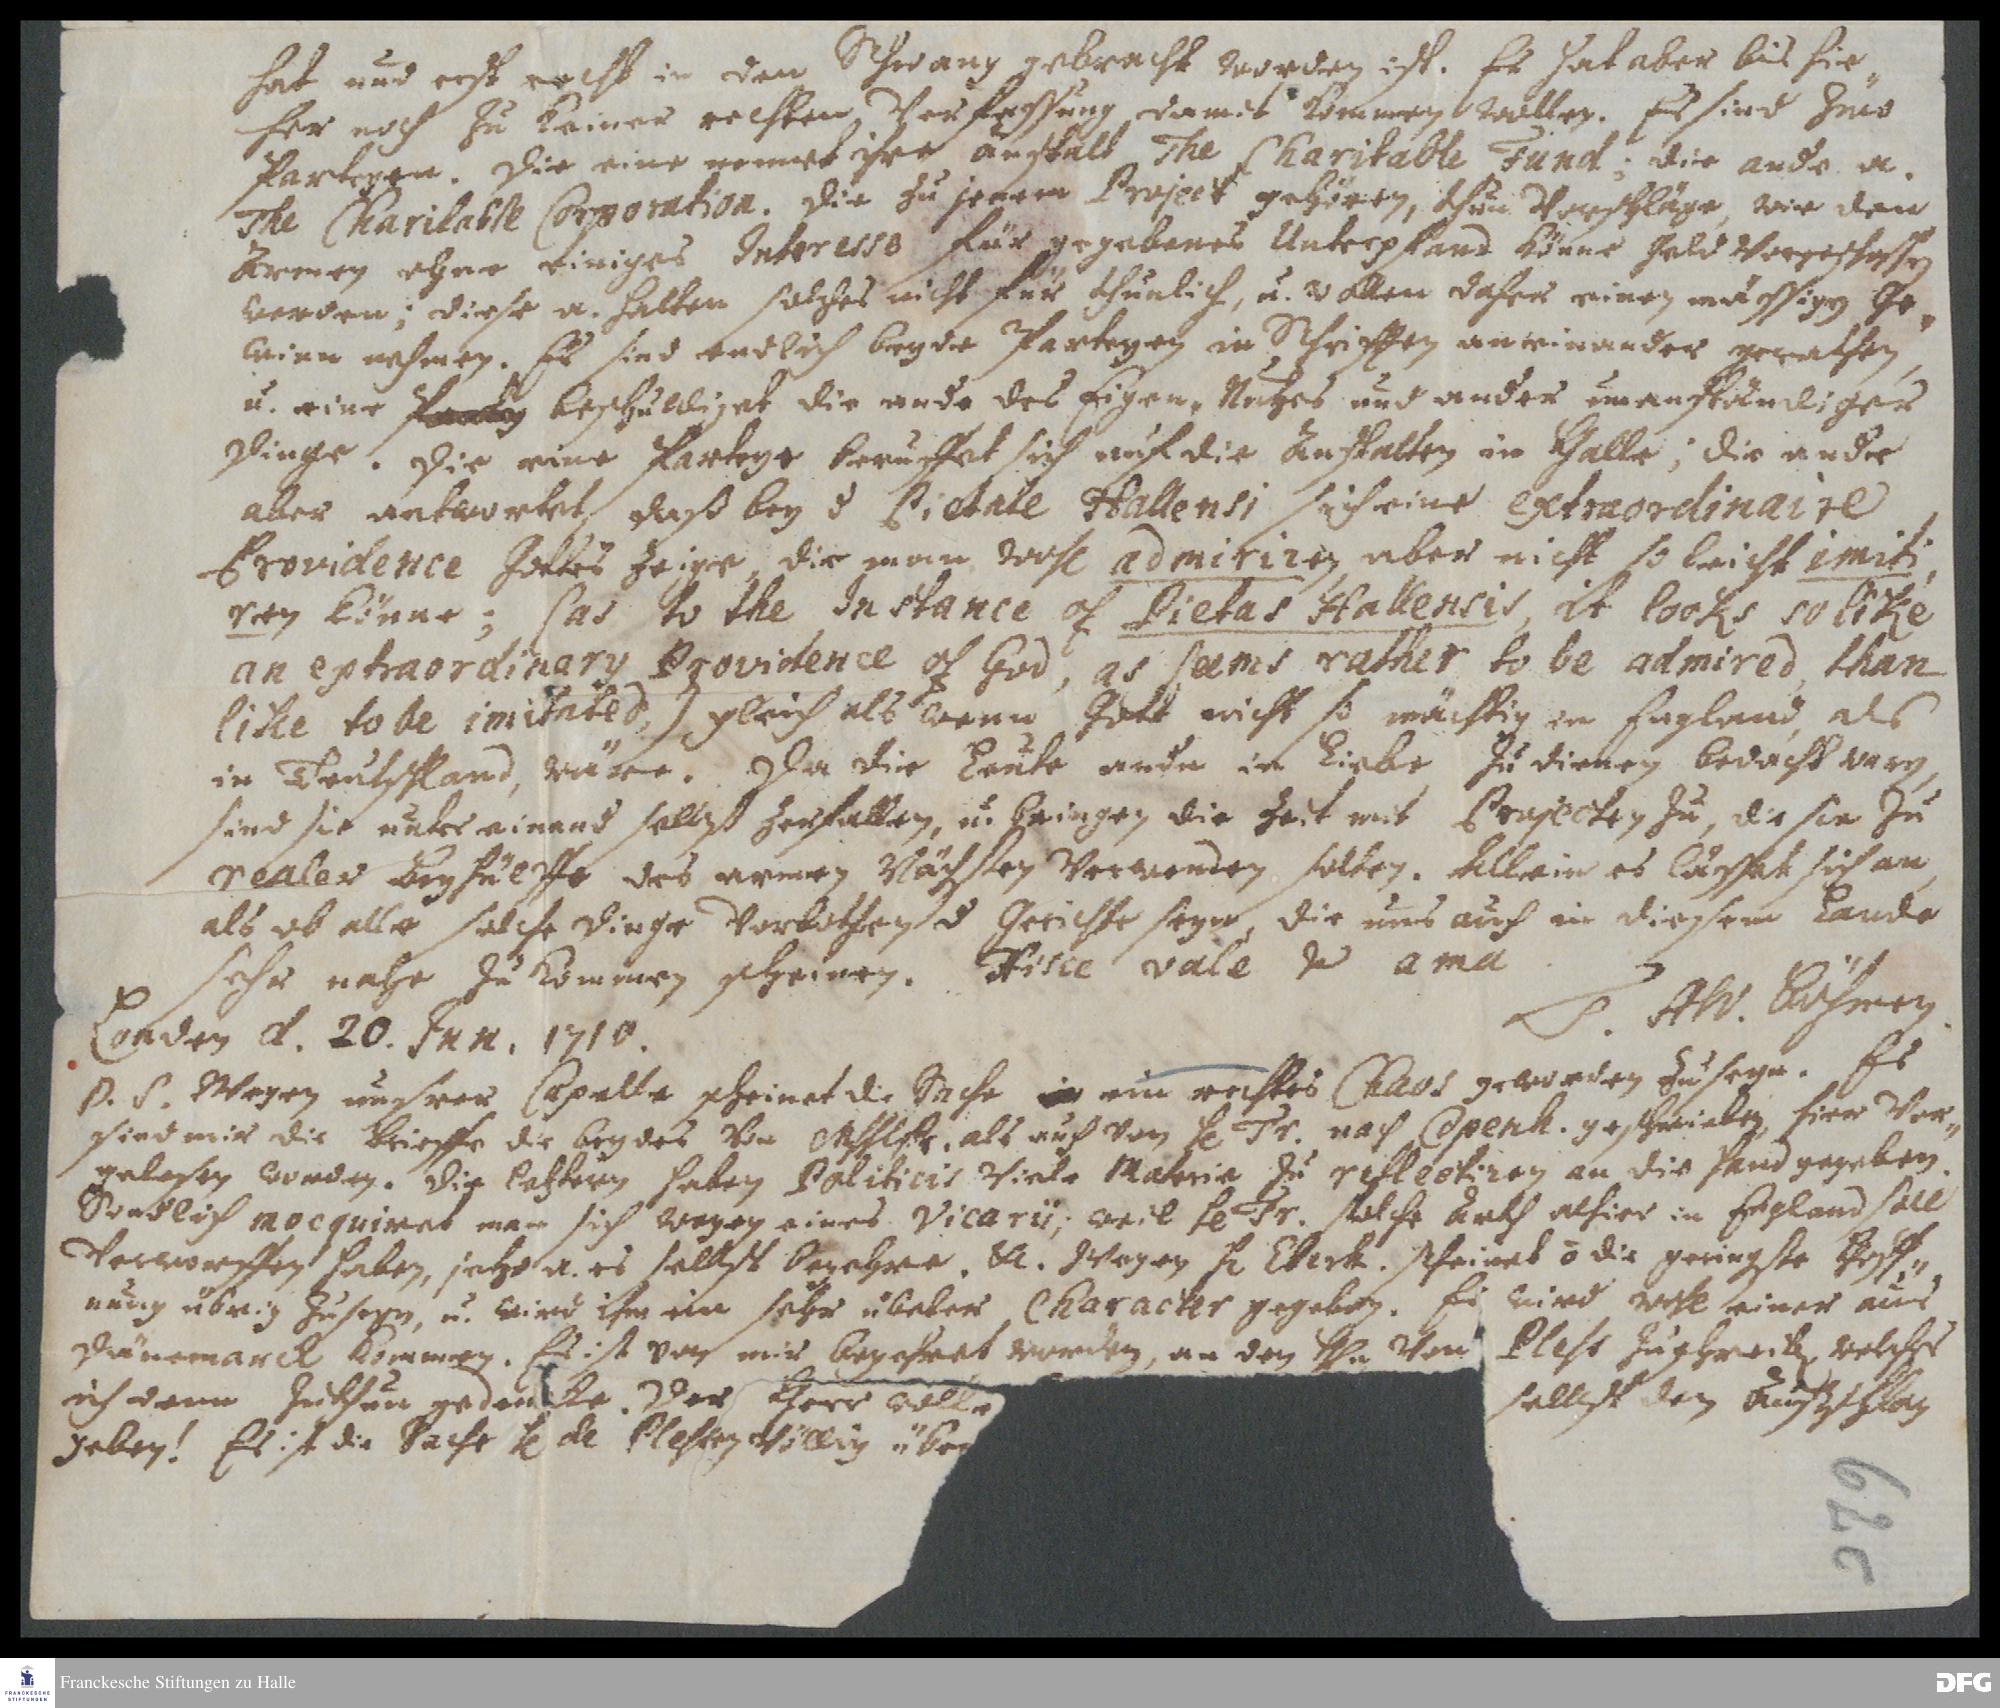 hat und erst recht in den Schwang gebracht worden ist. Es hat aber bis hie„
her noch zu keiner rechten Verfassung damit kommen wollen. Es sind zwo
Parteyen. Die eine nennet ihre anstalt The Charitable Fund; die ande a.
The Charitable Corporation. Die zu jenem Project gehören, thun Vorschläge, wie den
Armen ohne einiges Interesse für gegebenes Unterpfand könne Geld vorgeschossen
werden; diese a. halten solches nicht für thunlich, u. wollen daher einen mässigen Ge„
winn nehmen. Es sind endlich beyde Parteyen in Schrifften aneinander gerathen,
u. eine beschuldiget die ande des Eigen-Nutzes und ander unanständiger
Dinge. Die eine Parteye beruffet sich auf die Anstalten in Halle; die ande
aber antwortet, daß bey d Pietate Hallensi sich eine extraordinaire
Providence Gottes zeige, die man wohl admiriren, aber nicht so leicht imiti„
ren könne; (as to the Instance of Pietas Hallensis, it looks so like
an extraordinary Providence of God, as seems rather to be admired, than
like to be imitated,) gleich als wenn Gott nicht so mächtig in England, als
in Teutschland, wäre. Da die Leute andn in Liebe zu dienen bedacht waren,
sind sie unter einand selbst zerfallen, u. bringen die Zeit mit Projecten zu, die sie zu
realer Beyhülffe des armen Nächsten verwenden solten. Allein es lässet sich an,
als ob alle solche Dinge Vorbothen d Gerichte seyn, die uns auch in diesem Lande
sehr nahe zu kommen scheinen. Hisce vale & ama
T. AW. Böhmen.
Londen d. 20. Jun. 1710.
P. S. Wegen unsrer Capelle scheinet die Sache ein rechtes Chaos geworden zu seyn. Es
sind mir die Brieffe die beydes von als auch von H Fr. nach Copenh. geschrieben, hier vor„
gelesen worden. Die letztern haben Politicis viele Materie zu reflectiren an die Hand gegeben.
Sondlich mocquiret man sich wegen eines Vicarii; weil H Fr. solche Arth alhier in England soll
verworffen haben, jetzo a. es selbst begehre. &. Wegen H Eberh. scheinet õ die geringste Hoff„
nung übrig zu seyn, u. wird ihm ein sehr übeler Character gegeben. Es wird wohl einer aus
Dänemarck kommen. Es ist von mir begehret worden, an den Hn Von Pless zu schreiben, welches
ich denn zu thun gedencke. Der Herr wolle selbst den Ausschlag
geben! Es ist die Sache H de Plessen völlig über
62c
Franckesche Stiftungen zu Halle
FRANCKESCHE
STIFTUNGEN
DFG